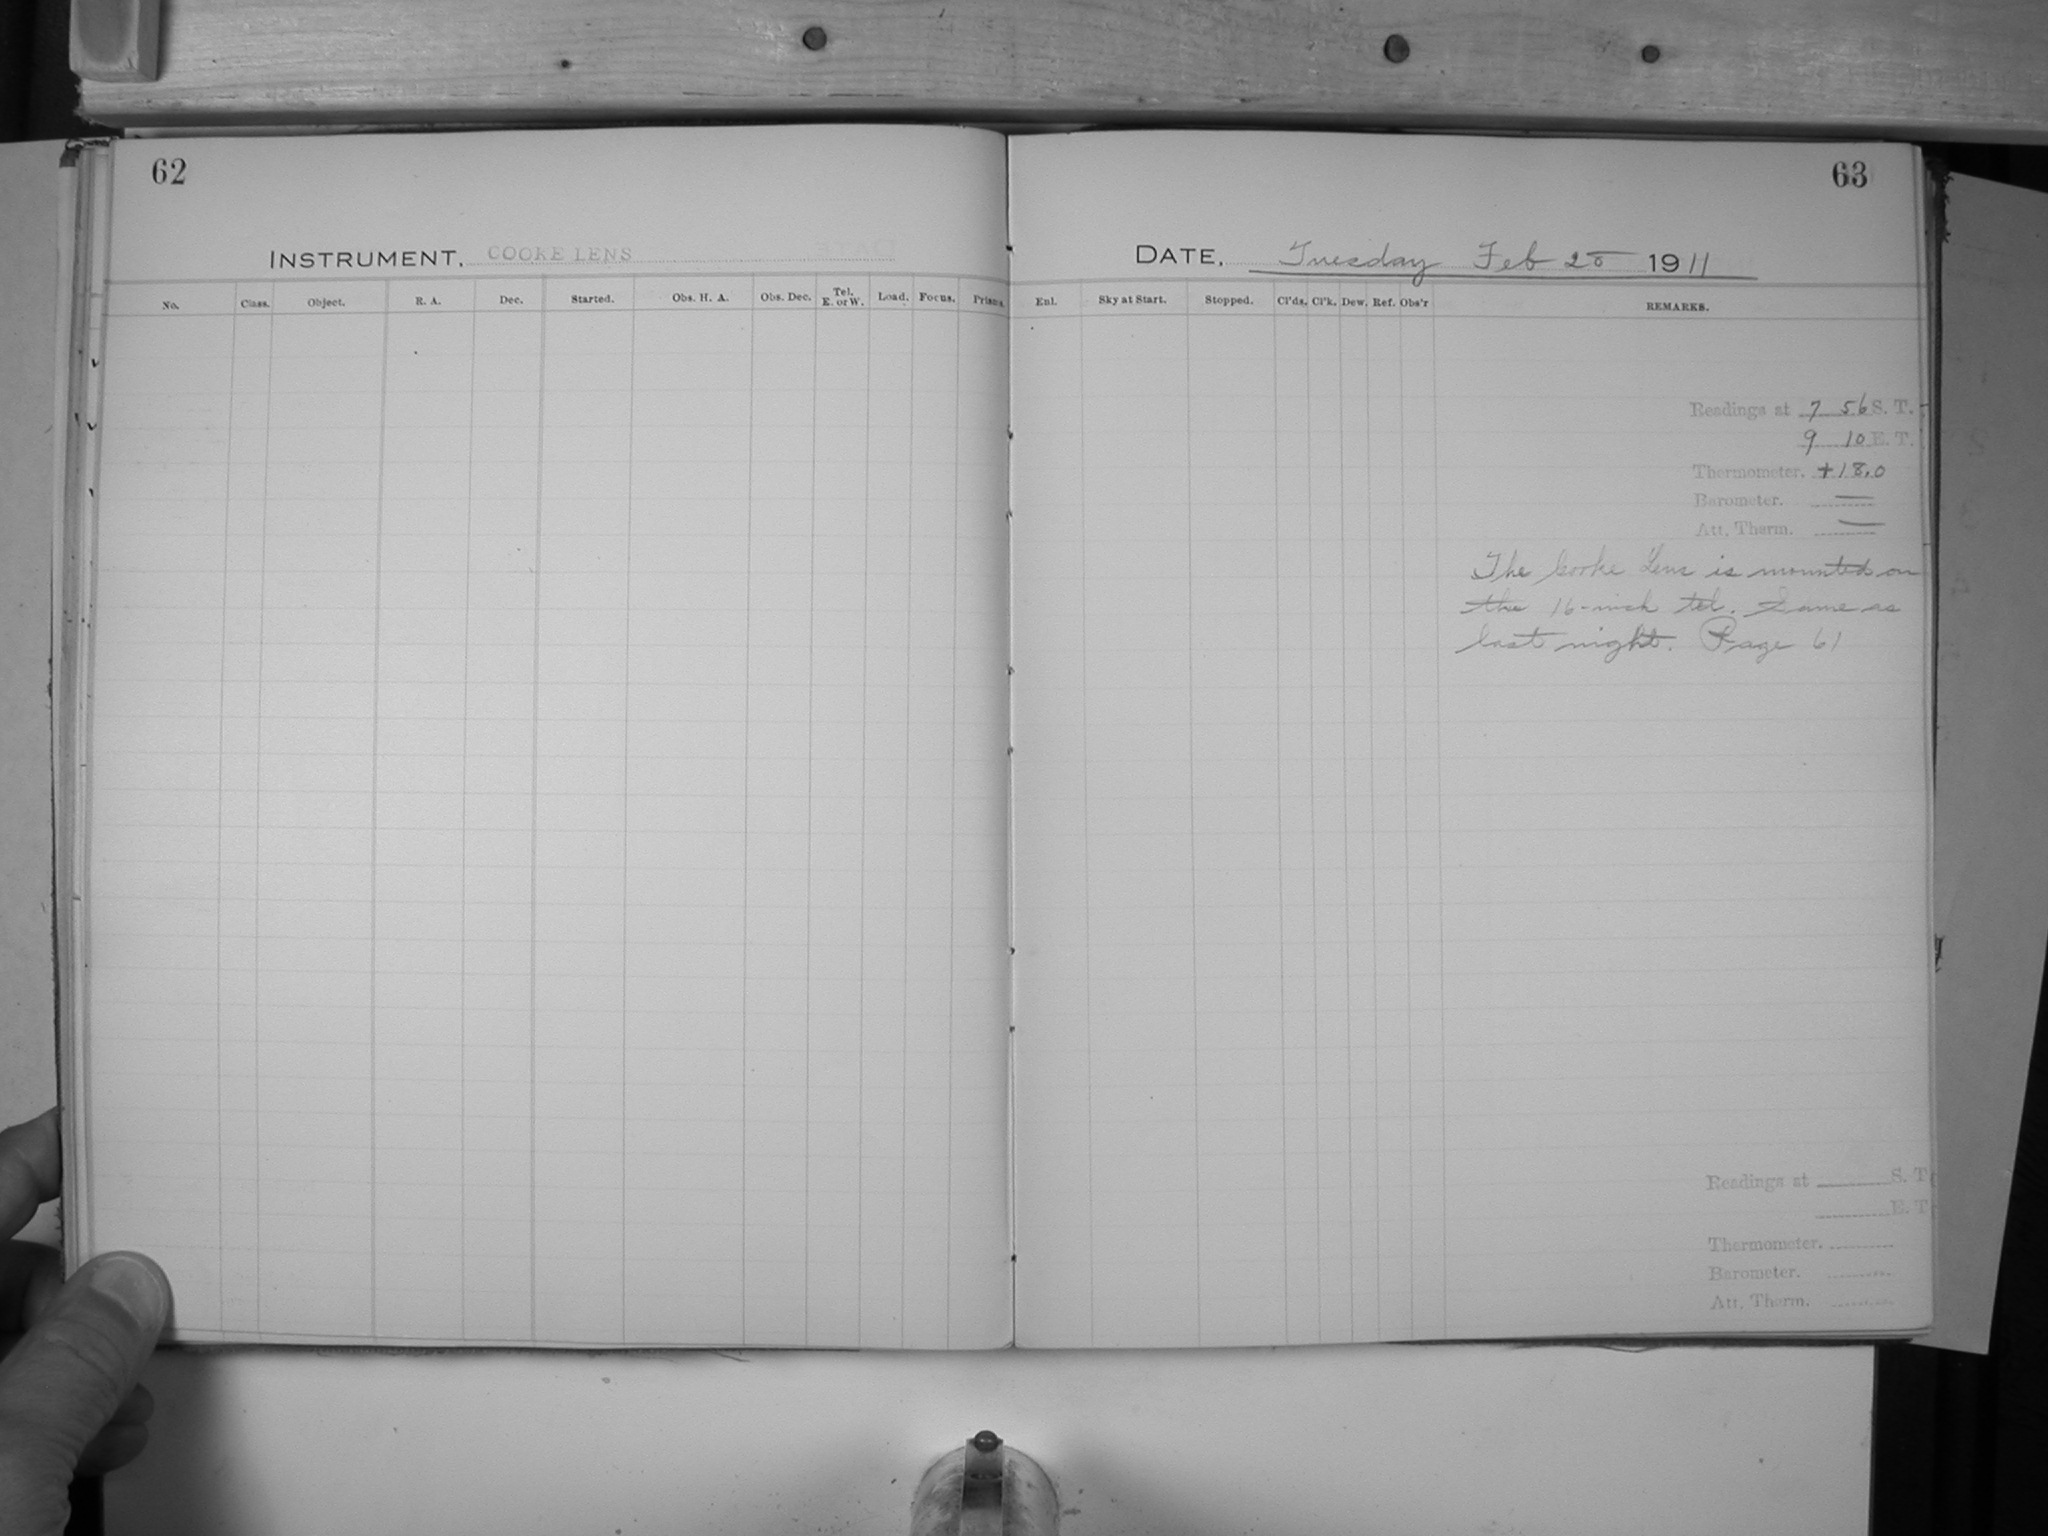 62
INSTRUMENT. COOKE LENS
No. Class. Object. R. A. Dec. Started. Obs. H. A. Obs. Dec. Tel. E. or W. Load. Focus. Prisms.
63
DATE. Tuesday Feb 1911
Enl. Sky at Start. Stopped. Cl'ds. Cl'k. Dew. Ref. Obs'r REMARKS.
Readings at 7 56 S. T.
9 10 E. T.
Thermometer. +18.0
Barometer. —
Att. Therm. —
The Cooke Lens is mounted on
the 16-inch tel. Same as
last night. Page 61
Readings at S. T.
E. T.
Thermometer.
Barometer.
Att. Therm.